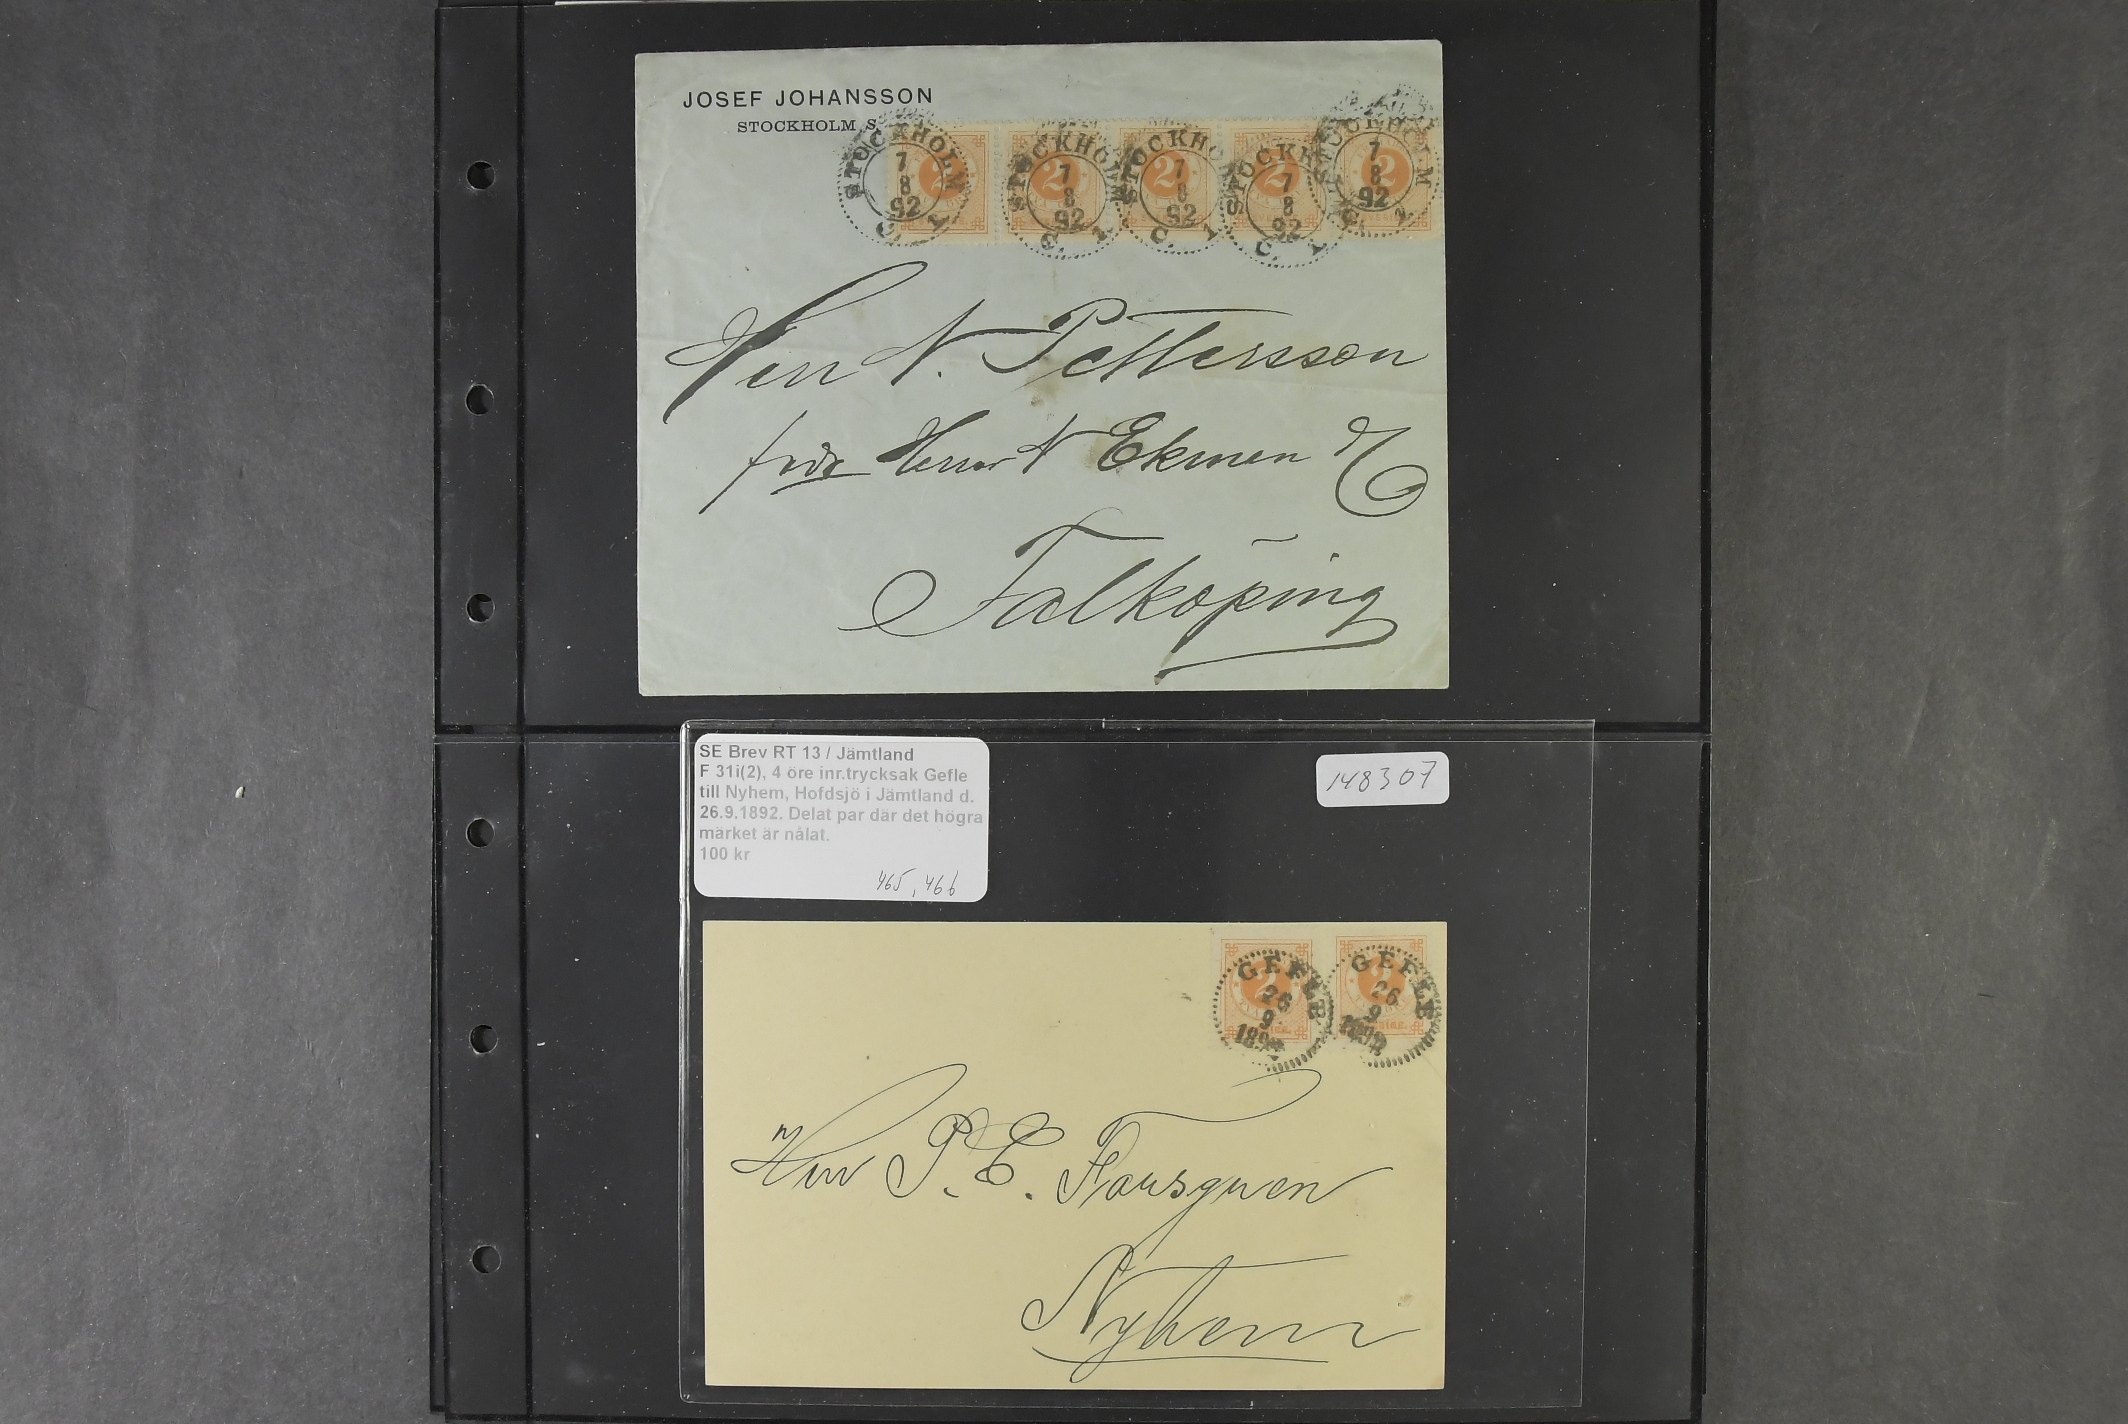 JOSEF JOHANSSON
STOCKHOLM S
STOCKHOLM 7 8 92 C. 1.
STOCKHOLM 7 8 92 C. 1.
STOCKHOLM 7 8 92 C. 1.
STOCKHOLM 7 8 92 C. 1.
STOCKHOLM 7 8 92 C. 1.
2
2
2
2
2
Herr N. Pettersson
Herrar N Ekman &
Falköping
SE Brev RT 13 / Jämtland
F 31i(2), 4 öre inr.trycksak Gefle
till Nyhem, Hofdsjö i Jämtland d.
26.9.1892. Delat par där det högra
märket är nålat.
100 kr
465, 466
148307
GEFLE 26 9 1892
GEFLE 26 9 1892
2
2
Herr P. E.
Nyhem